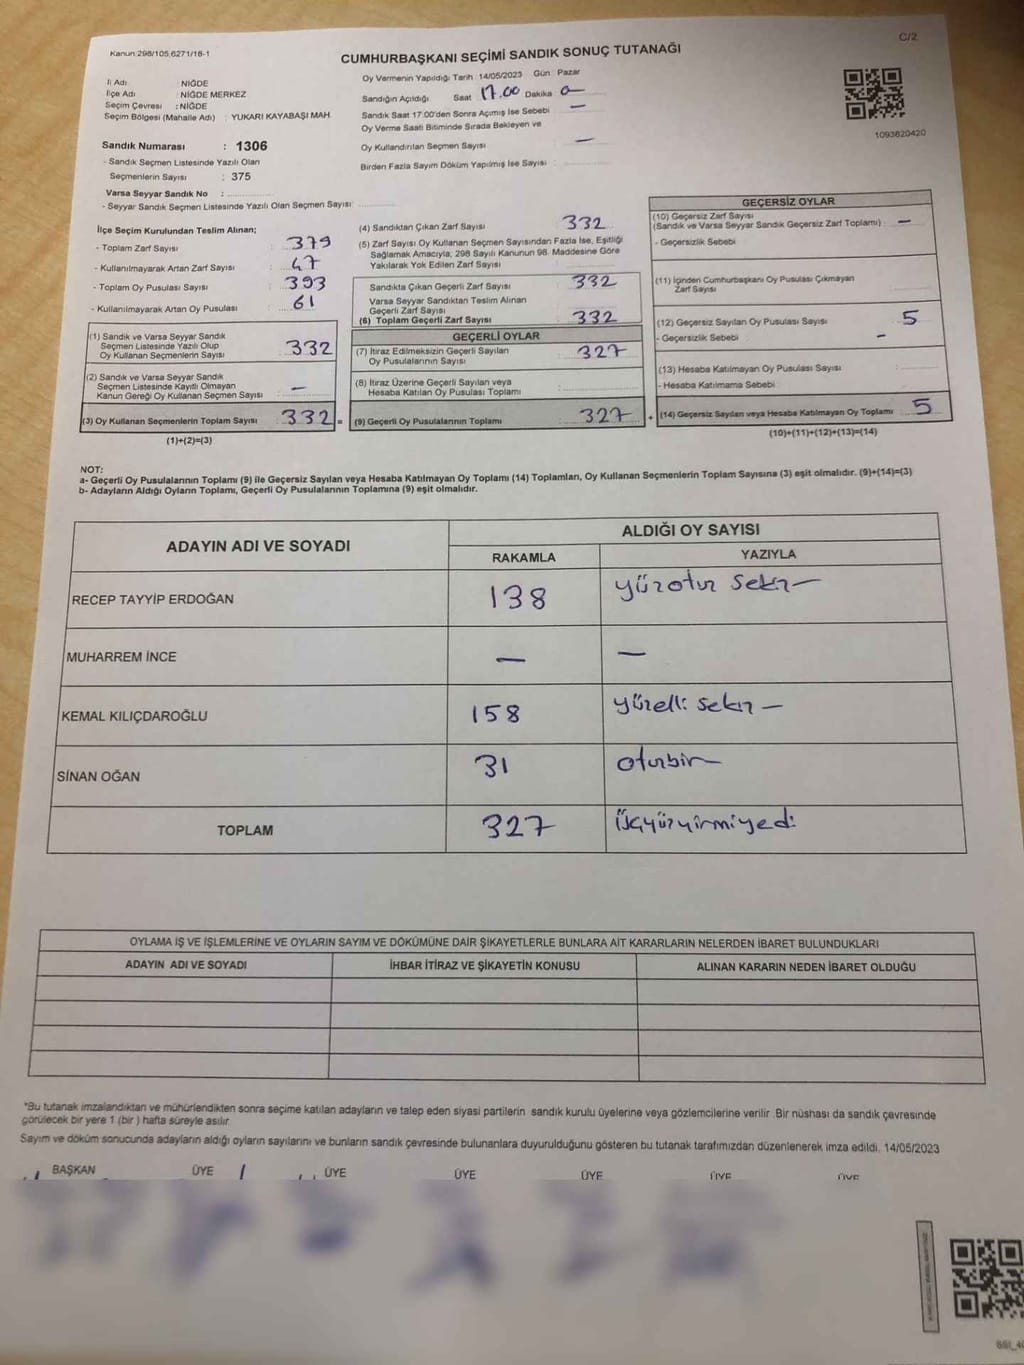 Kanun:298/105,6271/16-1
C/2
CUMHURBAŞKANI SEÇİMİ SANDIK SONUÇ TUTANAĞI
İl Adı : NİĞDE
İlçe Adı : NİĞDE MERKEZ
Seçim Çevresi : NİĞDE
Seçim Bölgesi (Mahalle Adı) : YUKARI KAYABAŞI MAH.
Sandık Numarası : 1306
- Sandık Seçmen Listesinde Yazılı Olan
Seçmenlerin Sayısı : 375
Varsa Seyyar Sandık No :
- Seyyar Sandık Seçmen Listesinde Yazılı Olan Seçmen Sayısı:
Oy Vermenin Yapıldığı Tarih :14/05/2023 Gün : Pazar
Sandığın Açıldığı Saat 17.00 Dakika
Sandık Saat 17:00'den Sonra Açımış İse Sebebi —
Oy Verme Saati Bitiminde Sırada Bekleyen ve
Oy Kullandırılan Seçmen Sayısı —
Birden Fazla Sayım Döküm Yapılmış İse Sayısı :
1093620420
İlçe Seçim Kurulundan Teslim Alınan;
- Toplam Zarf Sayısı : 379
- Kullanılmayarak Artan Zarf Sayısı : 47
- Toplam Oy Pusulası Sayısı : 393
- Kullanılmayarak Artan Oy Pusulası : 61
(1) Sandık ve Varsa Seyyar Sandık
Seçmen Listesinde Yazılı Olup
Oy Kullanan Seçmenlerin Sayısı : 332
(2) Sandık ve Varsa Seyyar Sandık
Seçmen Listesinde Kayıtlı Olmayan
Kanun Gereği Oy Kullanan Seçmen Sayısı : —
(3) Oy Kullanan Seçmenlerin Toplam Sayısı : 332 =
(1)+(2)=(3)
(4) Sandıktan Çıkan Zarf Sayısı : 332
(5) Zarf Sayısı Oy Kullanan Seçmen Sayısından Fazla İse, Eşitliği
Sağlamak Amacıyla, 298 Sayılı Kanunun 98. Maddesine Göre
Yakılarak Yok Edilen Zarf Sayısı :
Sandıkta Çıkan Geçerli Zarf Sayısı : 332
Varsa Seyyar Sandıktan Teslim Alınan
Geçerli Zarf Sayısı
(6) Toplam Geçerli Zarf Sayısı : 332
GEÇERLİ OYLAR
(7) İtiraz Edilmeksizin Geçerli Sayılan
Oy Pusulalarının Sayısı : 327
(8) İtiraz Üzerine Geçerli Sayılan veya
Hesaba Katılan Oy Pusulası Toplamı :
(9) Geçerli Oy Pusulalarının Toplamı : 327 +
GEÇERSİZ OYLAR
(10) Geçersiz Zarf Sayısı
(Sandık ve Varsa Seyyar Sandık Geçersiz Zarf Toplamı) : —
- Geçersizlik Sebebi
(11) İçinden Cumhurbaşkanı Oy Pusulası Çıkmayan
Zarf Sayısı
(12) Geçersiz Sayılan Oy Pusulası Sayısı : 5
- Geçersizlik Sebebi —
(13) Hesaba Katılmayan Oy Pusulası Sayısı :
- Hesaba Katılmama Sebebi
(14) Geçersiz Sayılan veya Hesaba Katılmayan Oy Toplamı : 5
(10)+(11)+(12)+(13)=(14)
NOT:
a- Geçerli Oy Pusulalarının Toplamı (9) ile Geçersiz Sayılan veya Hesaba Katılmayan Oy Toplamı (14) Toplamları, Oy Kullanan Seçmenlerin Toplam Sayısına (3) eşit olmalıdır. (9)+(14)=(3)
b- Adayların Aldığı Oyların Toplamı, Geçerli Oy Pusulalarının Toplamına (9) eşit olmalıdır.
ADAYIN ADI VE SOYADI
ALDIĞI OY SAYISI
RAKAMLA YAZIYLA
RECEP TAYYİP ERDOĞAN 138 yüzotuz sekiz —
MUHARREM İNCE — —
KEMAL KILIÇDAROĞLU 158 yüzelli sekiz —
SİNAN OĞAN 31 otuzbir —
TOPLAM 327 üçyüzyirmiyedi
OYLAMA İŞ VE İŞLEMLERİNE VE OYLARIN SAYIM VE DÖKÜMÜNE DAİR ŞİKAYETLERLE BUNLARA AİT KARARLARIN NELERDEN İBARET BULUNDUKLARI
ADAYIN ADI VE SOYADI İHBAR İTİRAZ VE ŞİKAYETİN KONUSU ALINAN KARARIN NEDEN İBARET OLDUĞU
*Bu tutanak imzalandıktan ve mühürlendikten sonra seçime katılan adayların ve talep eden siyasi partilerin sandık kurulu üyelerine veya gözlemcilerine verilir .Bir nüshası da sandık çevresinde
görülecek bir yere 1 (bir ) hafta süreyle asılır.
Sayım ve döküm sonucunda adayların aldığı oyların sayılarını ve bunların sandık çevresinde bulunanlara duyurulduğunu gösteren bu tutanak tarafımızdan düzenlenerek imza edildi. 14/05/2023
BAŞKAN ÜYE ÜYE ÜYE ÜYE ÜYE ÜYE